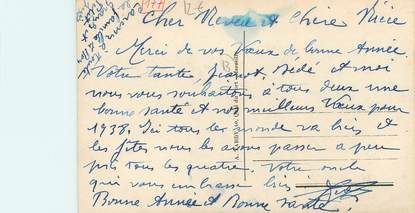 Cher Neveu et Chère Nièce
Merci de vos Vœux de bonne Année.
Votre tante, Jeanot, Dédé et moi
nous vous souhaitons à tous deux une
bonne santé et nos meilleurs Vœux pour
1938. Ici tous le monde va bien et
les fêtes nous les avons passer a peu
près tous les quatre. Votre oncle
qui vous embrasse bien
Bonne Année et Bonne Santé